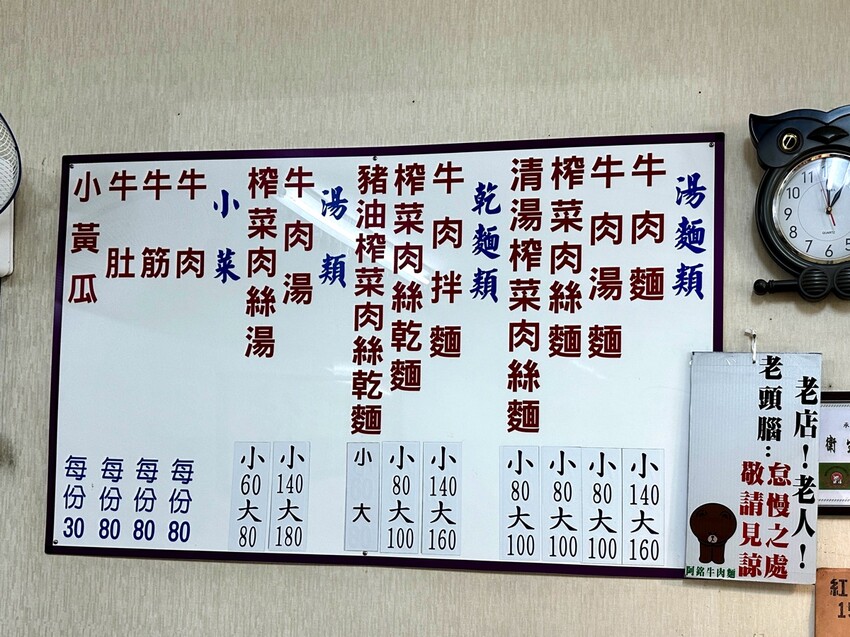 湯麵類
牛肉麵
小140大160
牛肉湯麵
小80大100
榨菜肉絲麵
小80大100
清湯榨菜肉絲麵
小80大100
乾麵類
牛肉拌麵
小140大160
榨菜肉絲乾麵
小80大100
豬油榨菜肉絲乾麵
小 大
湯類
牛肉湯
小140大180
榨菜肉絲湯
小60大80
小菜
牛肉
每份80
牛筋
每份80
牛肚
每份80
小黃瓜
每份30
老店!老人!
老頭腦:
怠慢之處
敬請見諒
阿銘牛肉麵
12
11
10
9
8
7
6
5
4
QUARTZ
紅